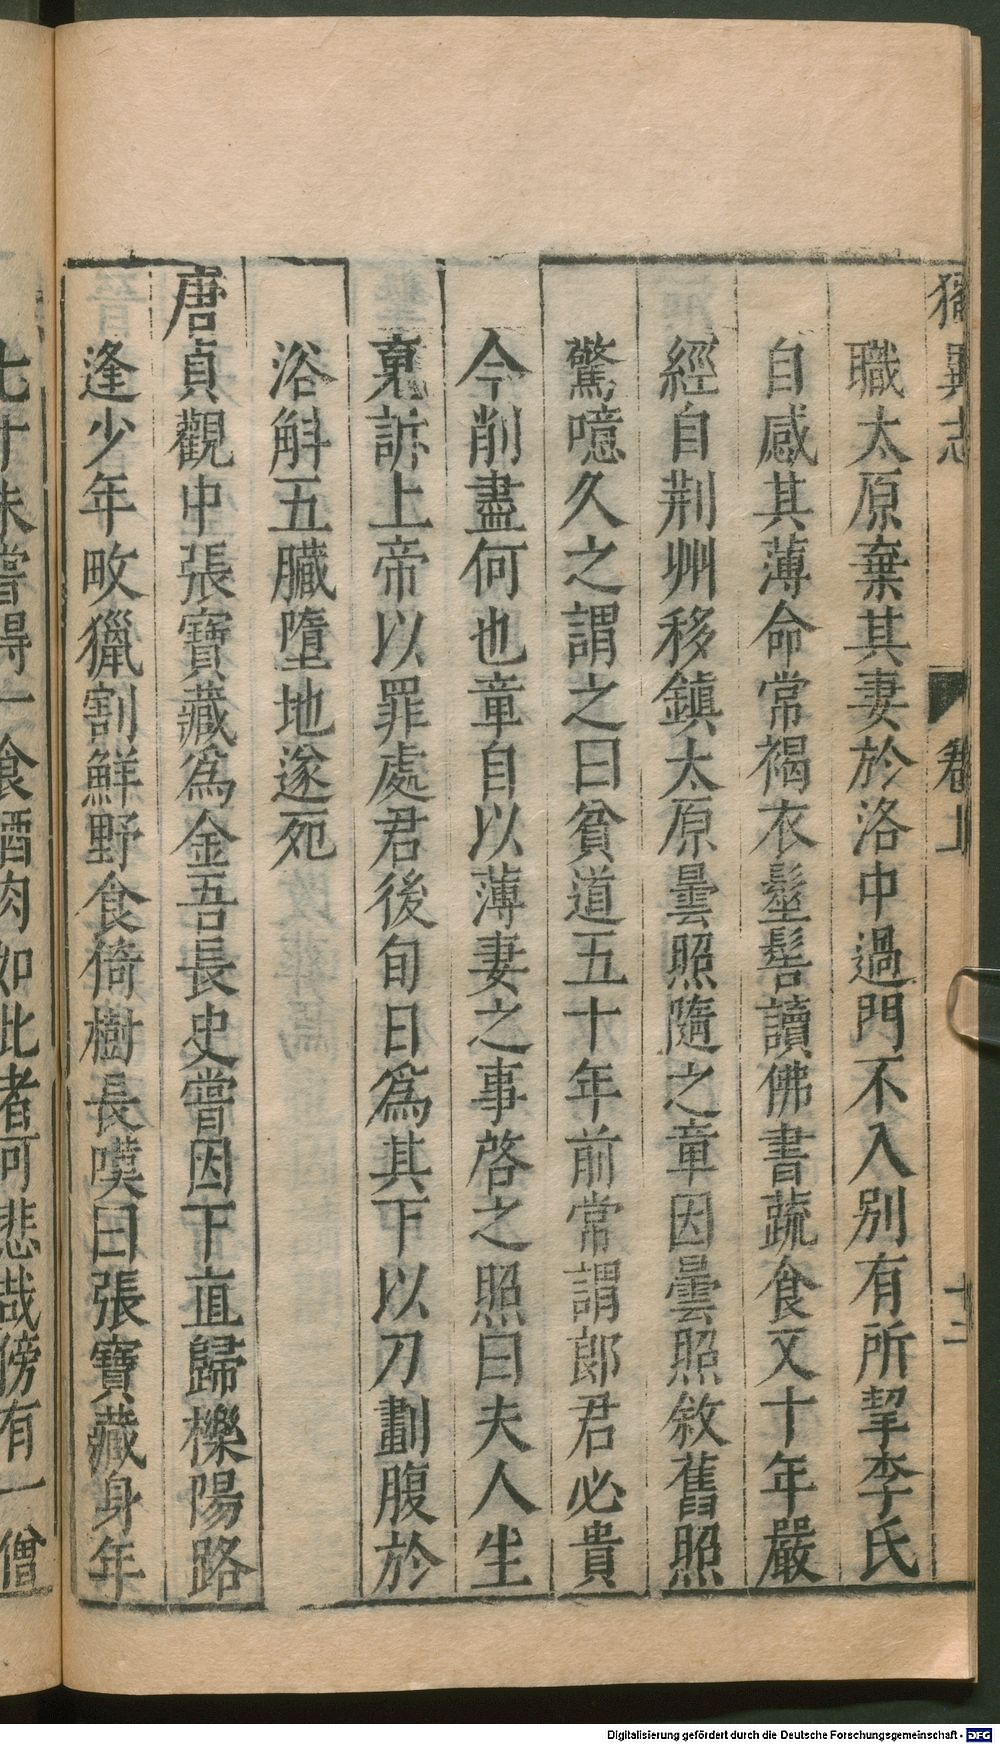 獨異志 卷上 十二
職太原棄其妻於洛中過門不入別有所挈李氏
自感其薄命常褐衣髽髻讀佛書蔬食又十年嚴
經自荆州移鎮太原曇照隨之章因曇照敘舊照
驚噫久之謂之曰貧道五十年前常謂郎君必貴
今削盡何也章自以薄妻之事啓之照曰夫人生
䰟訴上帝以罪處君後旬日爲其下以刀劃腹於
浴斛五臟墮地遂死
唐貞觀中張寶藏爲金吾長史嘗因下直歸櫟陽路
逢少年畋獵割鮮野食倚樹長嘆曰張寶藏身年
七十未嘗得一食酒肉如此者可悲哉傍有一僧
Digitalisierung gefördert durch die Deutsche Forschungsgemeinschaft - DFG